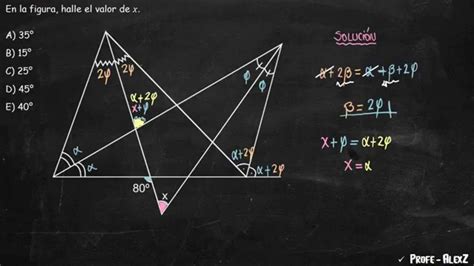 En la figura, halle el valor de x.
A) 35°
B) 15°
C) 25°
D) 45°
E) 40°
2φ
2φ
α+2φ
x+φ
φ
φ
α
α
α+2φ
α+2φ
80°
x
SOLUCIÓN
α+2β=α+β+2φ
β=2φ
x+φ=α+2φ
x=α
✓ PROFE - ALEXZ